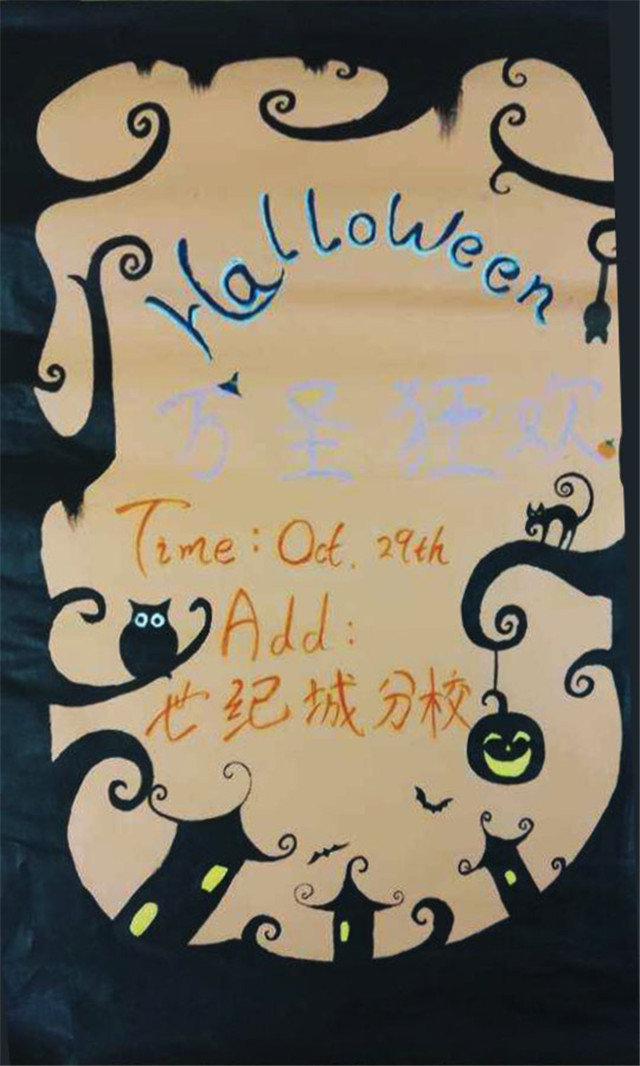 Halloween
万圣狂欢
Time: Oct. 29th
Add:
世纪城分校